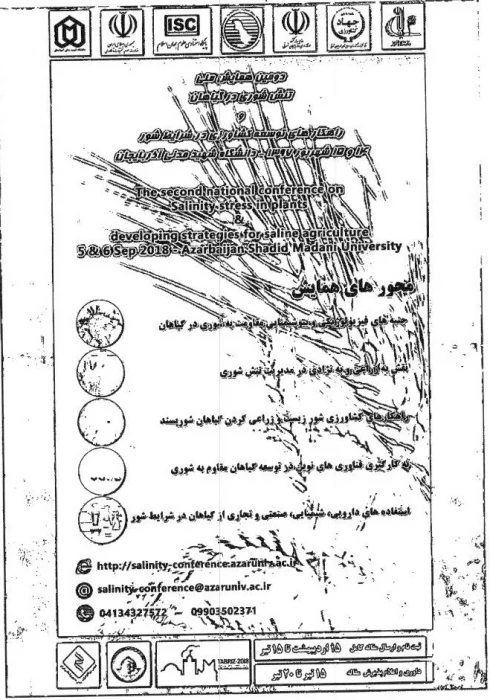 ISC
دومین همایش ملی
تنش شوری در گیاهان
و
راهکارهای توسعه کشاورزی در شرایط شور
۱۴ و ۱۵ شهریور ۱۳۹۷ - دانشگاه شهید مدنی آذربایجان
The second national conference on
Salinity stress in plants
&
developing strategies for saline agriculture
5 & 6 Sep 2018 - Azarbaijan Shadid Madani University
محور های همایش
جنبه های فیزیولوژیکی و بیوشیمیایی مقاومت به شوری در گیاهان
نقش به زراعی و به نژادی در مدیریت تنش شوری
راهکارهای کشاورزی شور زیست و زراعی کردن گیاهان شورپسند
به کارگیری فناوری های نوین در توسعه گیاهان مقاوم به شوری
استفاده های دارویی، شیمیایی، صنعتی و تجاری از گیاهان در شرایط شور
http://salinity-conference.azaruniv.ac.ir
salinity-conference@azaruniv.ac.ir
04134327572 - 09903502371
TABRIZ-2018
ثبت نام و ارسال مقاله کامل ۱۵ اردیبهشت تا ۱۵ تیر
داوری و اعلام پذیرش مقاله ۱۵ تیر تا ۲۰ تیر